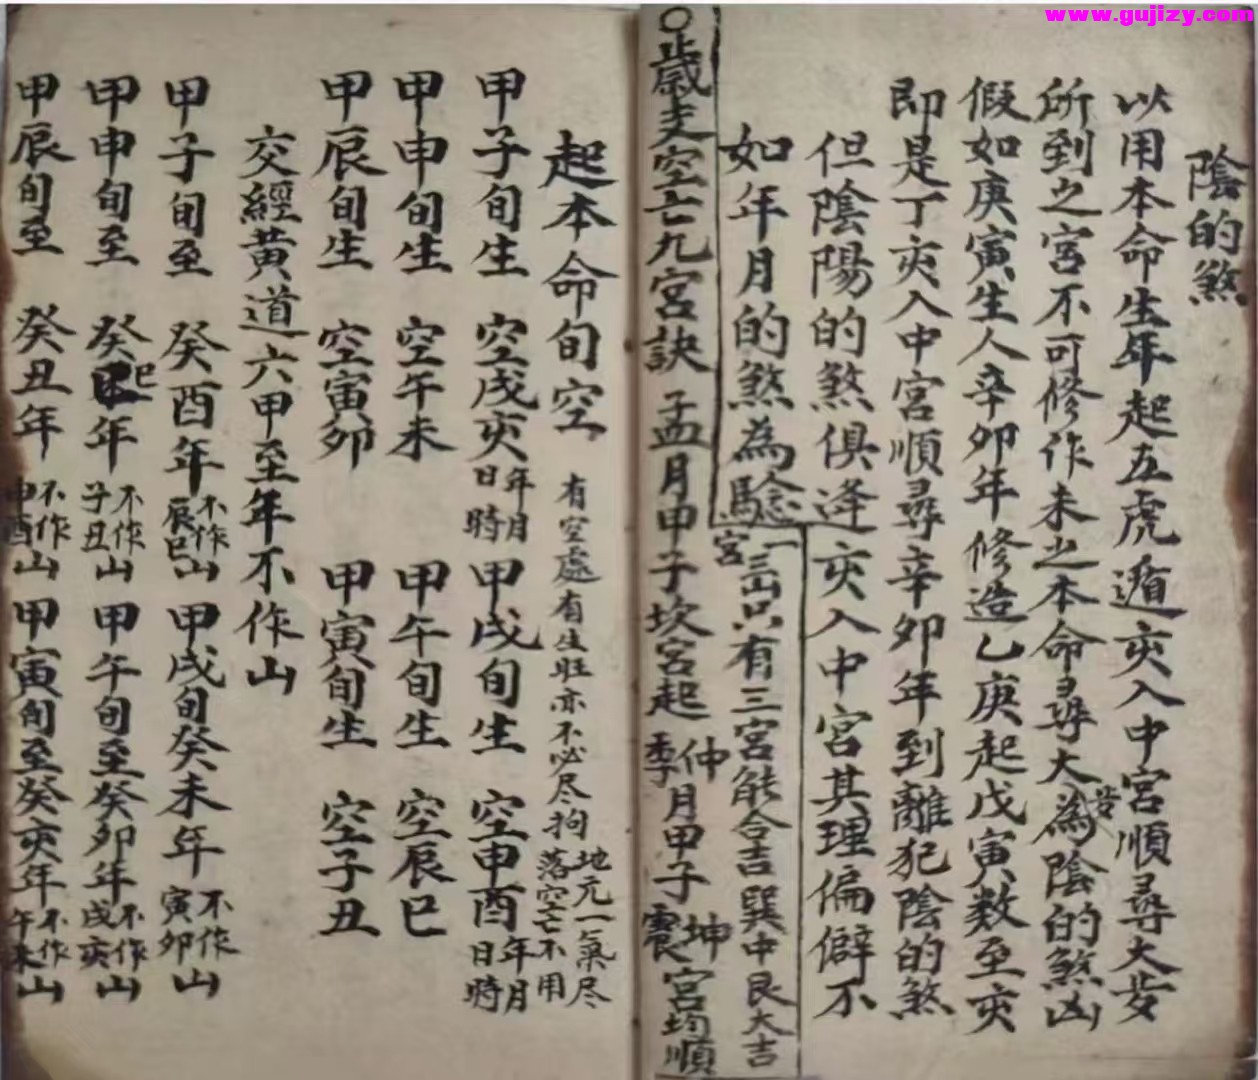 www.gujizy.com
陰的煞
以用本命生年起五虎遁亥入中宮順尋大歲
所到之宮不可修作未之本命尋大歲為陰的煞凶
假如庚寅生人辛卯年修造乙庚起戊寅数至亥
即是丁亥入中宮順尋辛卯年到離犯陰的煞
但陰陽的煞俱逢亥入中宮其理偏僻不
如年月的煞為驗
一宮三山只有三宮能合吉巽中艮大吉
〇歲支空亡九宮訣 子孟月甲子坎宮起仲季月甲子坤震宮均順
起本命旬空 有空處有生旺亦不必尽拘 地元一氣尽落空亡不用
甲子旬生 空戌亥年月日時 甲戌旬生 空申酉年月日時
甲申旬生 空午未 甲午旬生 空辰巳
甲辰旬生 空寅卯 甲寅旬生 空子丑
交經黃道六甲至年不作山
甲子旬至 癸酉年不作辰巳山 甲戌旬癸未年不作寅卯山
甲申旬至 癸巳年不作子丑山 甲午旬至癸卯年不作戌亥山
甲辰旬至 癸丑年不作申酉山 甲寅旬至癸亥年不作午未山